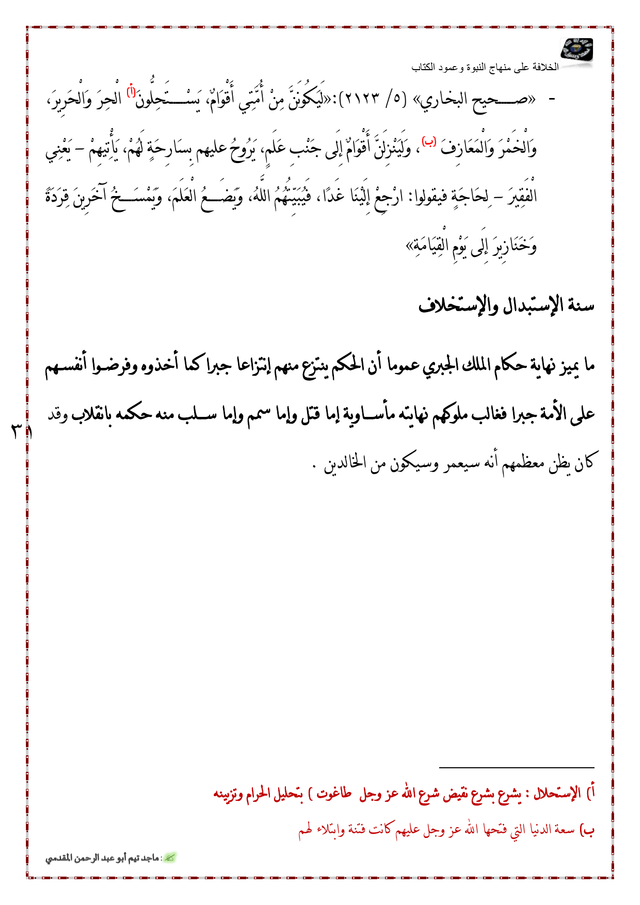 الخلافة على منهاج النبوة وعمود الكتاب
- «صـــحيح البخاري» (٥/ ٢١٢٣):«لَيَكُونَنَّ مِنْ أُمَّتِي أَقْوَامٌ، يَسْـــتَحِلُّونَ(أ) الْحِرَ وَالْحَرِيرَ،
وَالْخَمْرَ وَالْمَعَازِفَ (ب)، وَلَيَنْزِلَنَّ أَقْوَامٌ إِلَى جَنْبِ عَلَمٍ، يَرُوحُ عليهم بِسَارِحَةٍ لَهُمْ، يَأْتِيهِمْ – يَعْنِي
الْفَقِيرَ – لِحَاجَةٍ فيقولوا: ارْجِعْ إِلَيْنَا غَدًا، فَيُبَيِّتُهُمُ اللَّهُ، وَيَضَـــعُ الْعَلَمَ، وَيَمْسَـــخُ آخَرِينَ قِرَدَةً
وَخَنَازِيرَ إِلَى يَوْمِ الْقِيَامَةِ»
سنة الإستبدال والإستخلاف
ما يميز نهاية حكام الملك الجبري عموما أن الحكم ينتزع منهم إنتزاعا جبرا كما أخذوه وفرضـوا أنفسـهم
على الأمة جبرا فغالب ملوكهم نهايته مأســاوية إما قتل وإما سمم وإما ســلب منه حكمه بانقلاب وقد
كان يظن معظمهم أنه سيعمر وسيكون من الخالدين .
٣١
أ) الإستحلال : يشرع بشرع نقيض شرع الله عز وجل طاغوت ) بتحليل الحرام وتزيينه
ب) سعة الدنيا التي فتحها الله عز وجل عليهم كانت فتنة وابتلاء لهم
: ماجد تيم أبو عبد الرحمن المقدسي